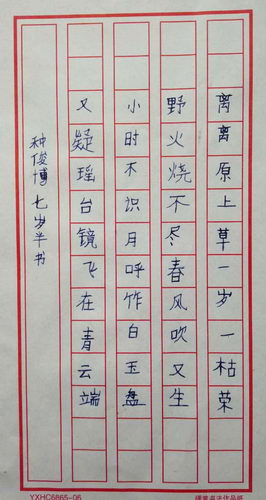 离离原上草一岁一枯荣
野火烧不尽春风吹又生
小时不识月呼作白玉盘
又疑瑶台镜飞在青云端
种俊博七岁半书
YXHC6865-06
硬笔书法作品纸